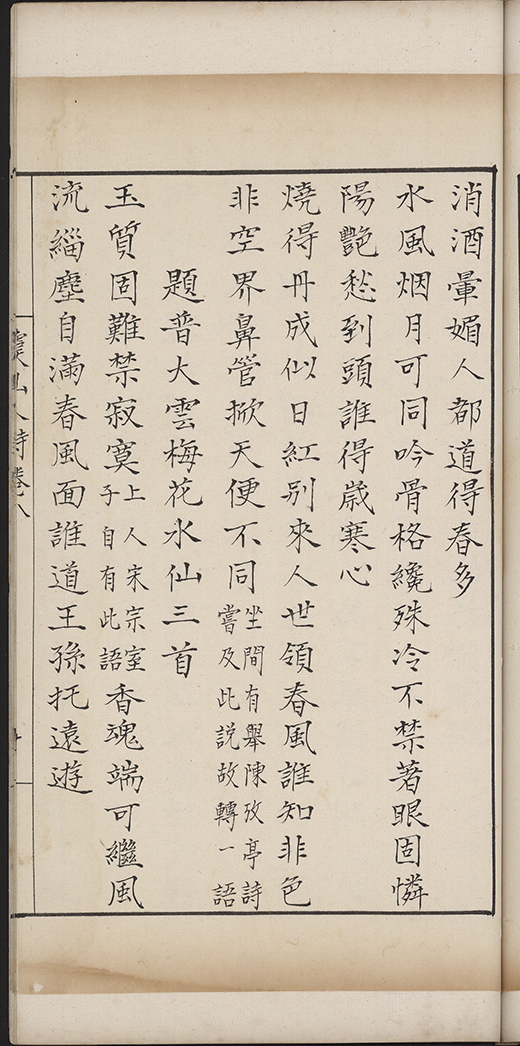 消酒暈媚人都道得春多
水風烟月可同吟骨格纔殊冷不禁著眼固憐
陽艷愁到頭誰得歲寒心
燒得丹成似日紅别來人世領春風誰知非色
非空界鼻管掀天便不同坐間有舉陳攷亭詩
嘗及此説故轉一語
題普大雲梅花水仙三首
玉質固難禁寂寞上人宋宗室
子自有此語香魂端可繼風
流緇塵自滿春風面誰道王孫托遠遊
山人詩卷八